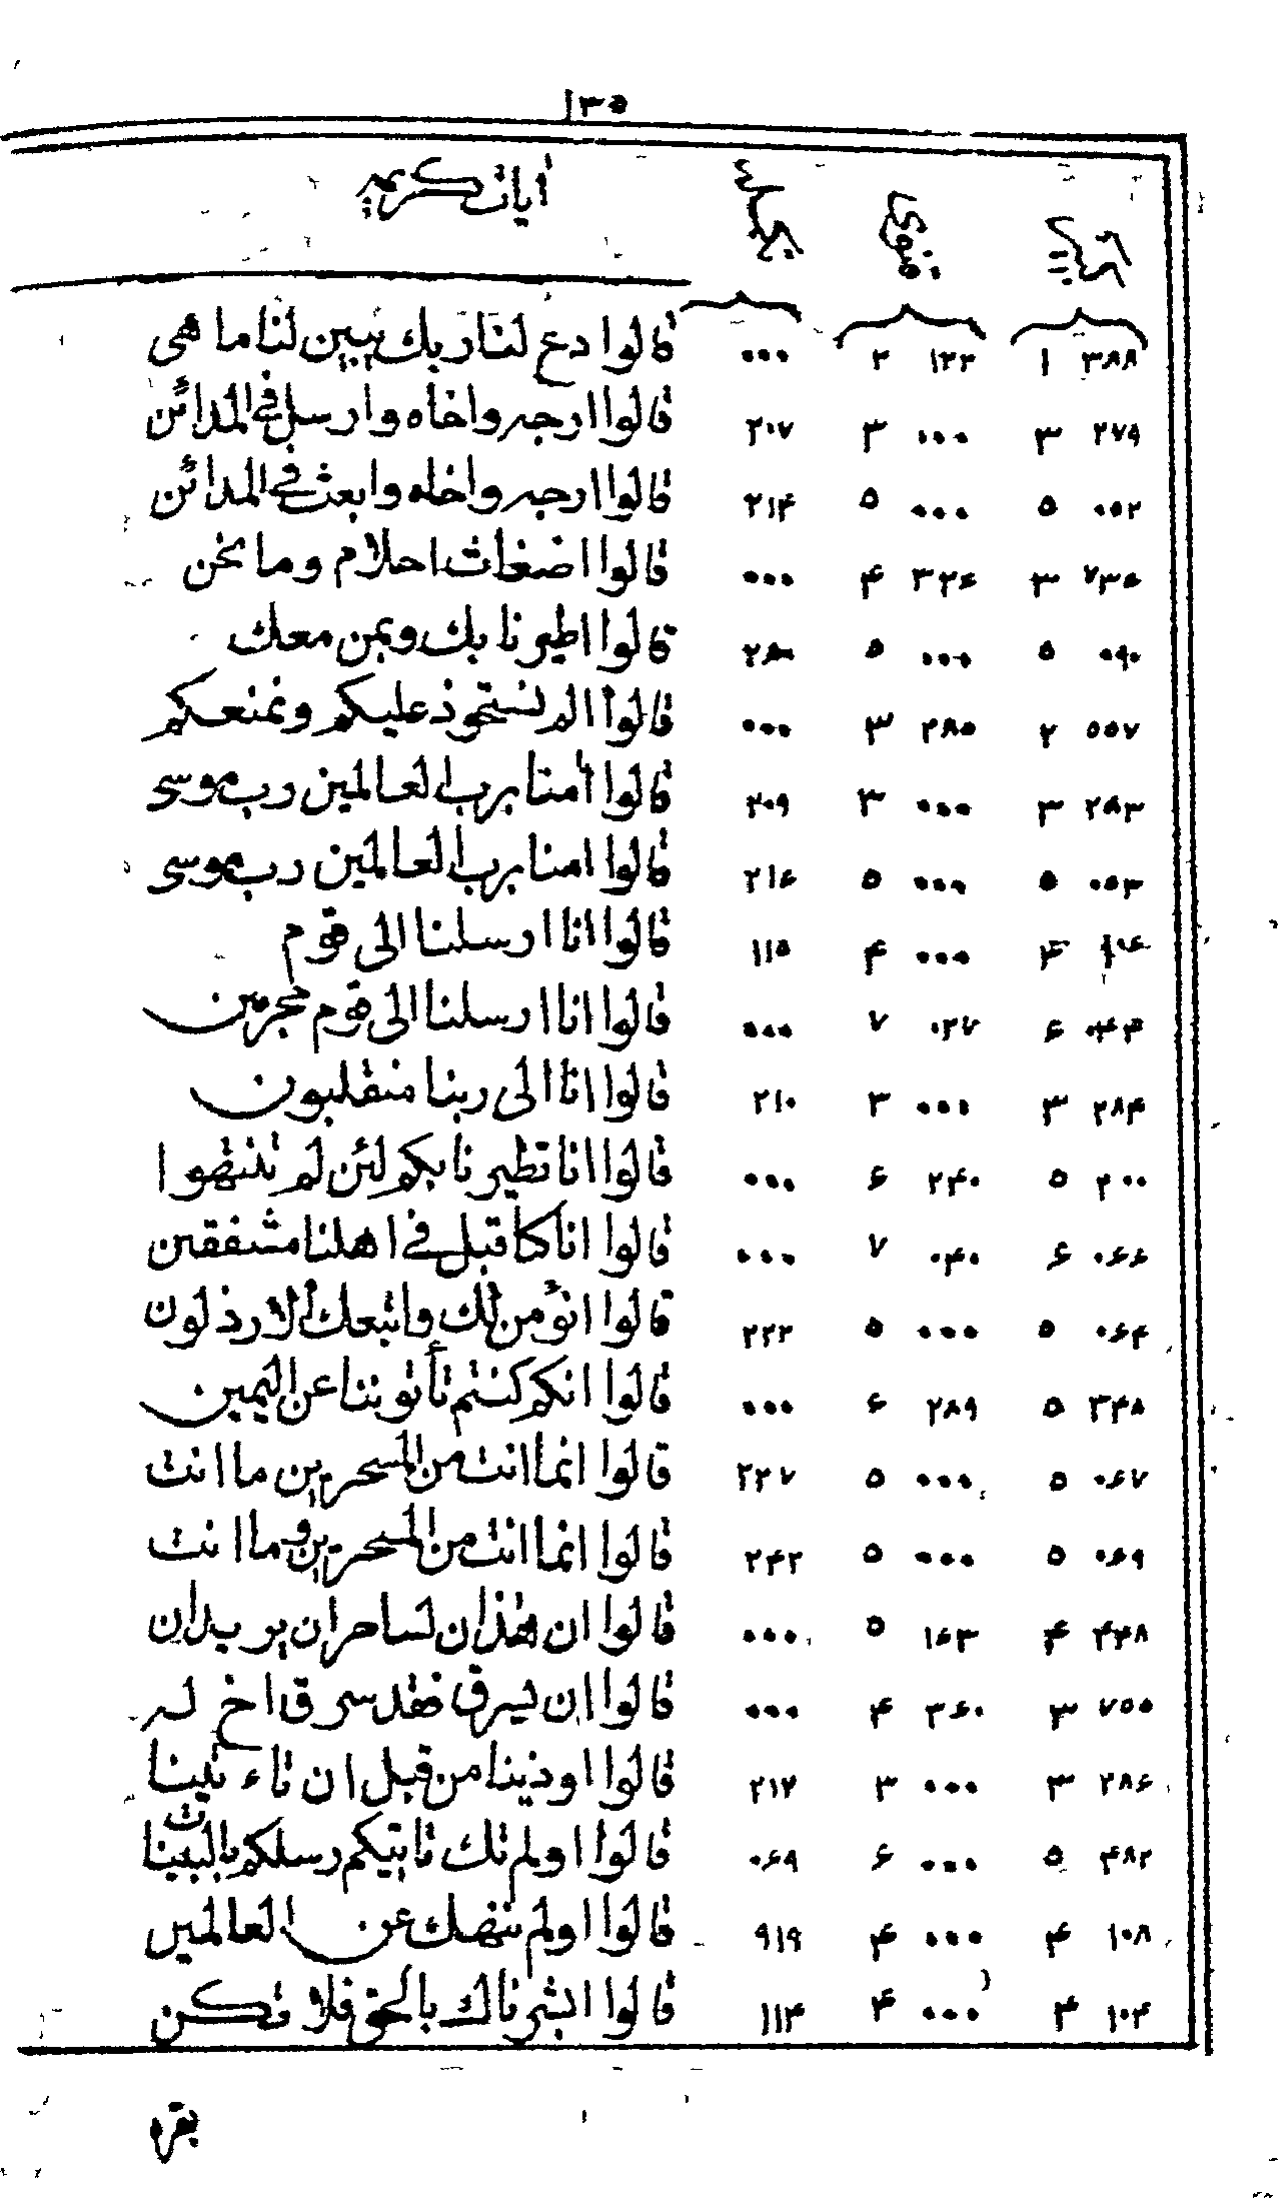 ١٣٥
آيات كريمه
٣٨٨ ١ ١٣٣ ٢ ٠٠٠ قالوا ادع لنا ربك يبين لنا ما هى
٢٧٩ ٣ ٠٠٠ ٣ ٢٠٧ قالوا ارجه واخاه وارسل فى المدائن
٠٥٢ ٥ ٠٠٠ ٥ ٢١۴ قالوا ارجه واخاه وابعث فى المدائن
٧٣٥ ٣ ٣٢۶ ۴ ٠٠٠ قالوا اضغاث احلام وما نحن
٠٩٠ ٥ ٠٠٠ ٥ قالوا اطيرنا بك وبمن معك
٥٥٧ ٢ ٢٨٥ ٣ ٠٠٠ قالوا الم نستحوذ عليكم ونمنعكم
٢٨٣ ٣ ٠٠٠ ٣ ٢٠٩ قالوا آمنا برب العالمين رب موسى
٠٥٣ ٥ ٠٠٠ ٥ ٢١۶ قالوا امنا برب العالمين رب موسى
۴ ٠٠٠ ۴ ١١٥ قالوا انا ارسلنا الى قوم
۶ ٠٢٧ ٧ ٠٠٠ قالوا انا ارسلنا الى قوم مجرمين
٢٨۴ ٣ ٠٠٠ ٣ ٢١٠ قالوا انا الى ربنا منقلبون
٢٠٠ ٥ ٢۴٠ ۶ ٠٠٠ قالوا انا تطيرنا بكم لئن لم تنتهوا
٠۶۶ ۶ ٠۴٠ ٧ ٠٠٠ قالوا انا كنا قبل فى اهلنا مشفقين
٠۶۴ ٥ ٠٠٠ ٥ ٢٢٢ قالوا انؤمن لك واتبعك الارذلون
٣۴٨ ٥ ٢٨٩ ۶ ٠٠٠ قالوا انكم كنتم تأتوننا عن اليمين
٠۶٧ ٥ ٠٠٠ ٥ ٢٢٧ قالوا انما انت من المسحرين ما انت
٠۶٩ ٥ ٠٠٠ ٥ ٢۴٢ قالوا انما انت من المسحرين وما انت
۴۴٨ ۴ ١۶٣ ٥ ٠٠٠ قالوا ان هذان لساحران يريدان
٧٥٥ ٣ ٣۶٠ ۴ ٠٠٠ قالوا ان يسرق فقد سرق اخ له
٢٨۶ ٣ ٠٠٠ ٣ ٢١٢ قالوا اوذينا من قبل ان تاءتينا
۴٨٢ ٥ ٠٠٠ ۶ ٠۶٩ قالوا اولم تك تاتيكم رسلكم بالبينات
١٠٨ ۴ ٠٠٠ ۴ ٩١٩ قالوا اولم ننهك عن العالمين
١٠۴ ۴ ٠٠٠ ۴ ١١۴ قالوا ابشرناك بالحق فلا تكن
بقره